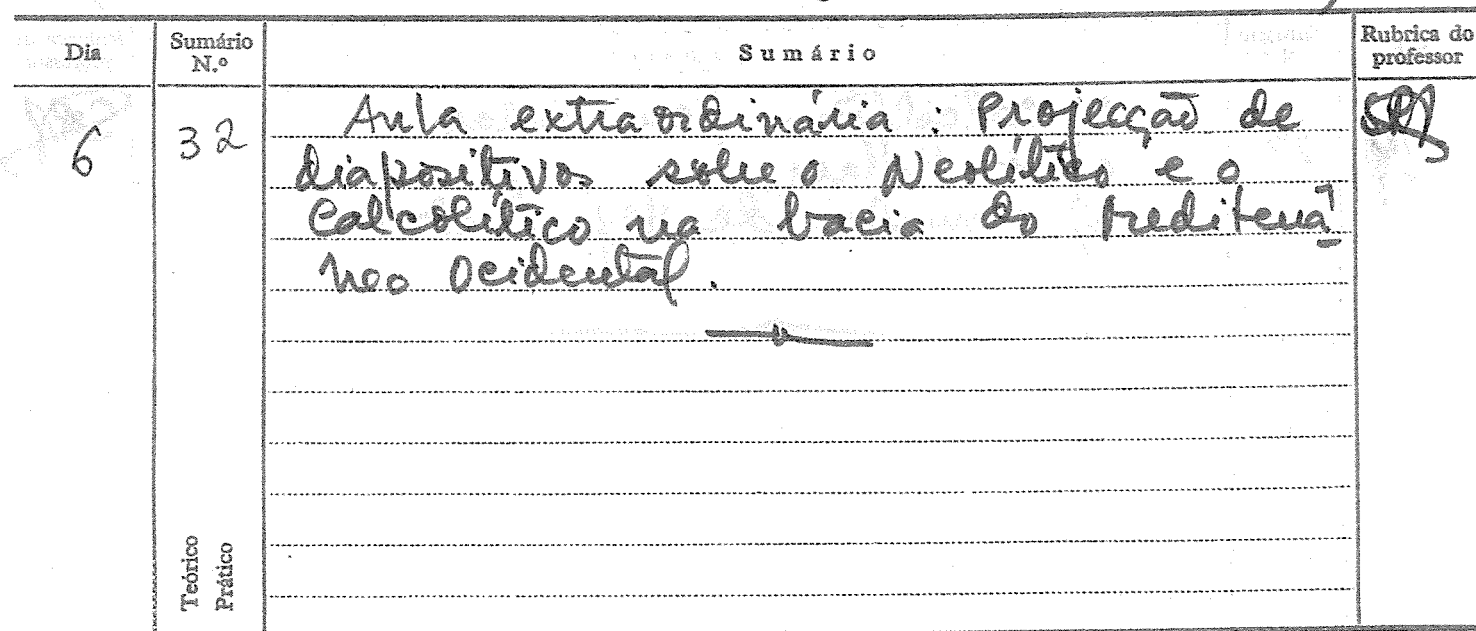 Dia
Sumário N.º
Sumário
Rubrica do professor
6
32
Aula extraordinária : Projecção de
diapositivos sobre o Neolítico e o
Calcolítico na bacia do Mediterrâ-
neo Ocidental.
Teórico
Prático